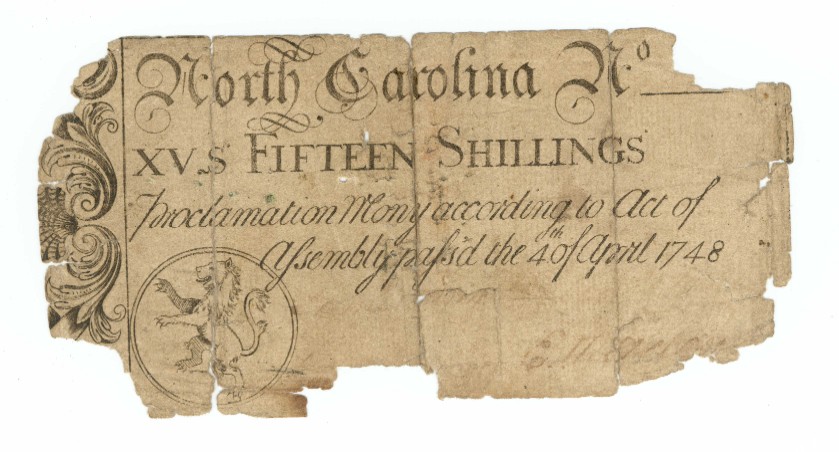 North Carolina No
XV.S FIFTEEN SHILLINGS
Proclamation Mony according to Act of
Assembly pass'd the 4th of April 1748